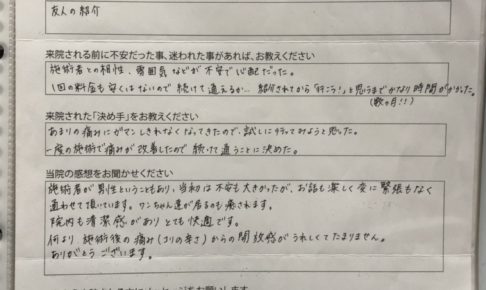 友人の紹介
来院される前に不安だった事、迷われた事があれば、お教えください
施術者との相性、雰囲気などが不安で心配だった。
1回の料金も安くはないので続けて通えるか… 紹介されてから「行こう!」と思うまでかなり時間がかかりました。
(数ヶ月!!)
来院された「決め手」をお教えください
あまりの痛みにガマンしきれなくなってきたので、試しに行ってみようと思した。
一度の施術で痛みが改善したので続けて通うことに決めた。
当院の感想をお聞かせください
施術者が男性ということもあり、当初は不安も大きかったが、お話も楽しく変に緊張もなく
通わせて頂いています。ワンちゃん達が居るのも癒されます。
院内も清潔感がありとても快適です。
何より施術後の痛み(コリの辛さ)からの開放感がうれしくてたまりません。
ありがとうございます。